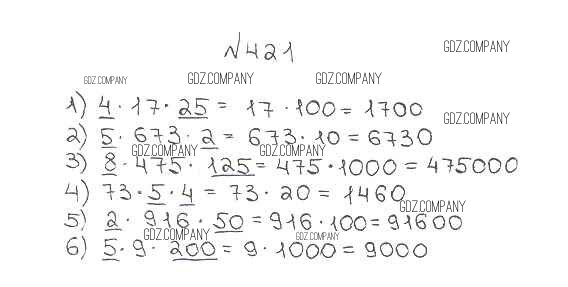 №421
GDZ.COMPANY
GDZ.COMPANY GDZ.COMPANY GDZ.COMPANY
1) 4 · 17 · 25 = 17 · 100 = 1700
GDZ.COMPANY
2) 5 · 673 · 2 = 673 · 10 = 6730
GDZ.COMPANY GDZ.COMPANY
3) 8 · 475 · 125 = 475 · 1000 = 475000
4) 73 · 5 · 4 = 73 · 20 = 1460
GDZ.COMPANY
5) 2 · 916 · 50 = 916 · 100 = 91600
GDZ.COMPANY GDZ.COMPANY
6) 5 · 9 · 200 = 9 · 1000 = 9000